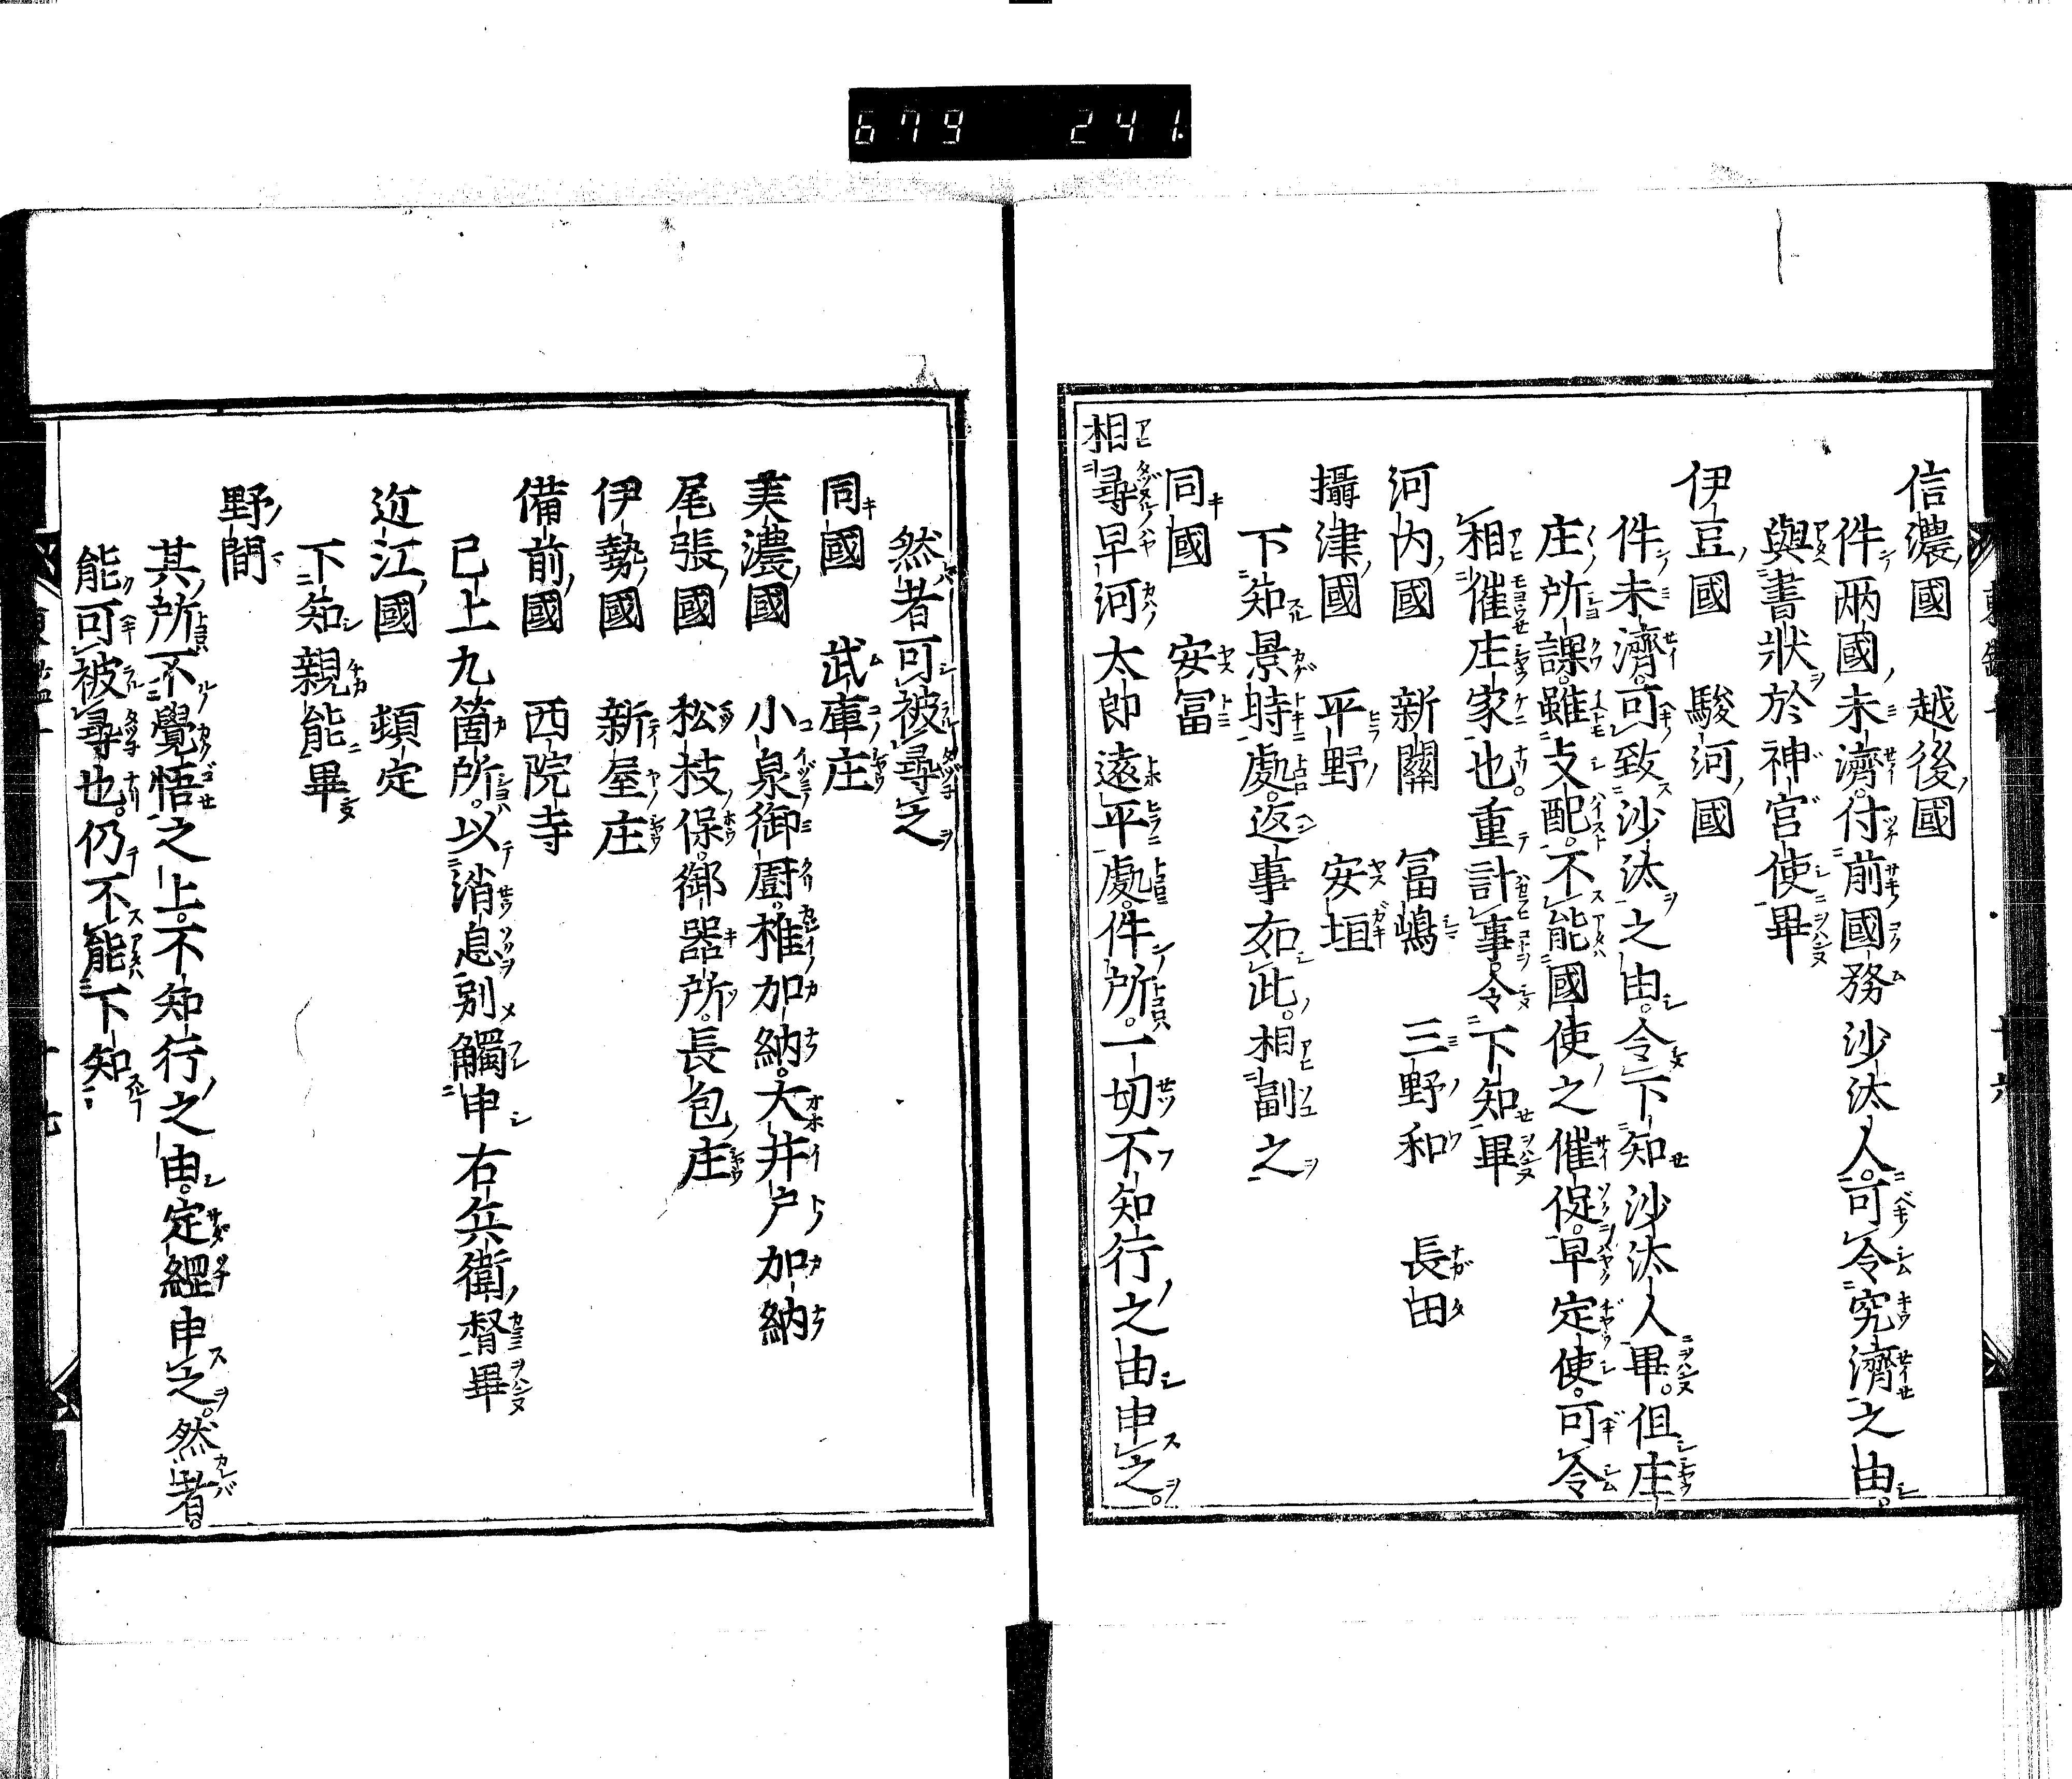 679 241.
信濃國　越後國
件兩國未濟。付前國務沙汰人。可令究濟之由。
與書狀於神宮使畢
伊豆國　駿河國
件未濟。可致沙汰之由。令下知沙汰人畢。但庄
庄所課。雖支配。不能國使之催促。早定使。可令
相催庄家也。重計事。令下知畢
河内國　新關　冨嶋　三野和　長田
攝津國　平野　安垣
下知景時處。返事如此。相副之
同國　安冨
相尋早河太郎遠平處。件所。一切不知行之由申之。
然者可被尋之
同國　武庫庄
美濃國　小泉御厨。椎加納。大井戸加納
尾張國　松枝保。御器所。長包庄
伊勢國　新屋庄
備前國　西院寺
已上九箇所。以消息別觸申右兵衛督畢
近江國　頓定
下知親能畢
野間
其所不覺悟之上。不知行之由。定經申之。然者。
能可被尋也。仍不能下知